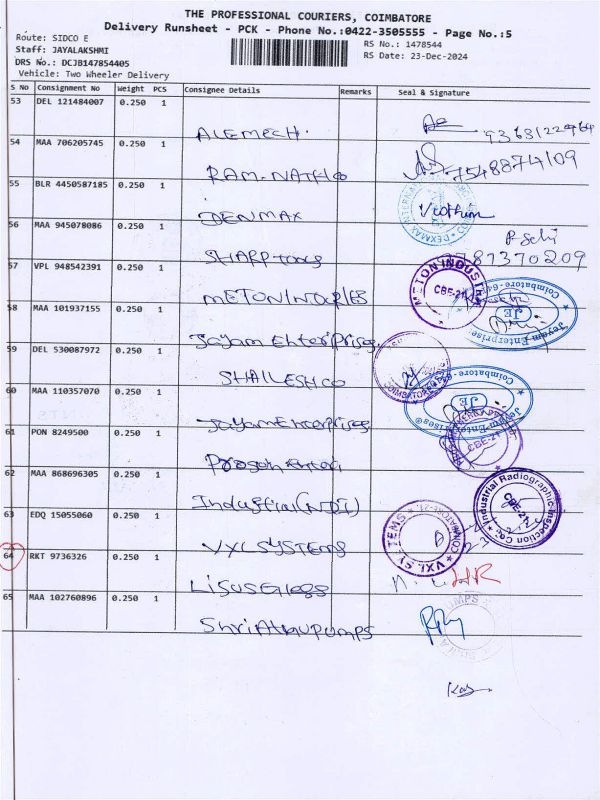 THE PROFESSIONAL COURIERS, COIMBATORE
Delivery Runsheet - PCK - Phone No.:0422-3505555 - Page No.:5
Route: SIDCO E
Staff: JAYALAKSHMI
DRS No.: DCJB147854405
Vehicle: Two Wheeler Delivery
RS No.: 1478544
RS Date: 23-Dec-2024
S No Consignment No Weight PCS Consignee Details Remarks Seal & Signature
53 DEL 121484007 0.250 1
ALEMECH. 9363122464
54 MAA 706205745 0.250 1
RAM-NATH CO 7548874109
55 BLR 4450587185 0.250 1
DENMAX
56 MAA 945078086 0.250 1
SHARP TOOLS 8787370209
57 VPL 948542391 0.250 1
METON INDUSTRIES METON INDUSTRIES CBE-21
58 MAA 101937155 0.250 1
Jayam Enterprises Jeyam Enterprises Coimbatore-64 JE
59 DEL 530087972 0.250 1
SHAILESH CO COIMBATORE
60 MAA 110357070 0.250 1
Jayam Enterprises Jeyam Enterprises JE
61 PON 8249500 0.250 1
CBE-21
62 MAA 868696305 0.250 1
Industrial (NDT) Industrial Radiographic Inspection Co. CBE-21
63 EDQ 15055060 0.250 1
VXL SYSTEMS VXL SYSTEMS COIMBATORE-21
64 RKT 9736326 0.250 1
65 MAA 102760896 0.250 1
Shri Athu PUMPS PUMPS